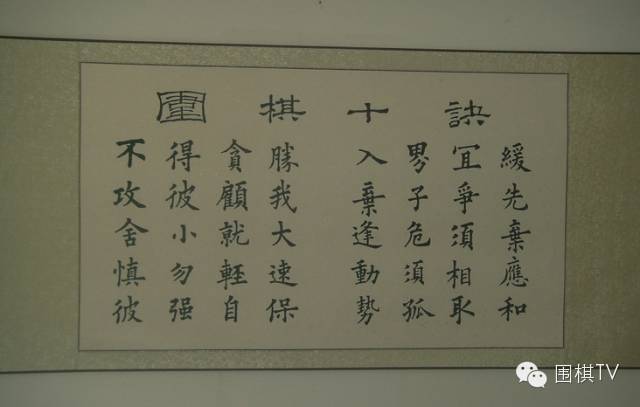 圍棋十訣
不得貪勝 入界宜緩
攻彼顧我 棄子爭先
舍小就大 逢危須棄
慎勿輕速 動須相應
彼强自保 勢孤取和
围棋TV